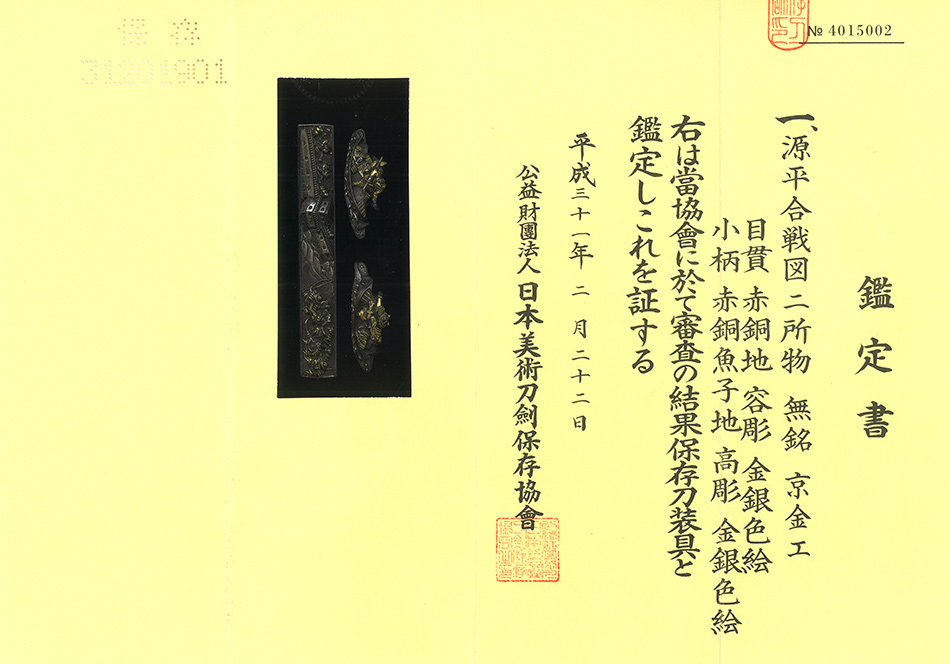 № 4015002
鑑定書
一、源平合戦図二所物 無銘 京金工
目貫 赤銅地 容彫 金銀色絵
小柄 赤銅魚子地 高彫 金銀色絵
右は當協會に於て審査の結果保存刀装具と
鑑定しこれを証する
平成三十一年 二月二十二日
公益財團法人 日本美術刀劍保存協會
保存